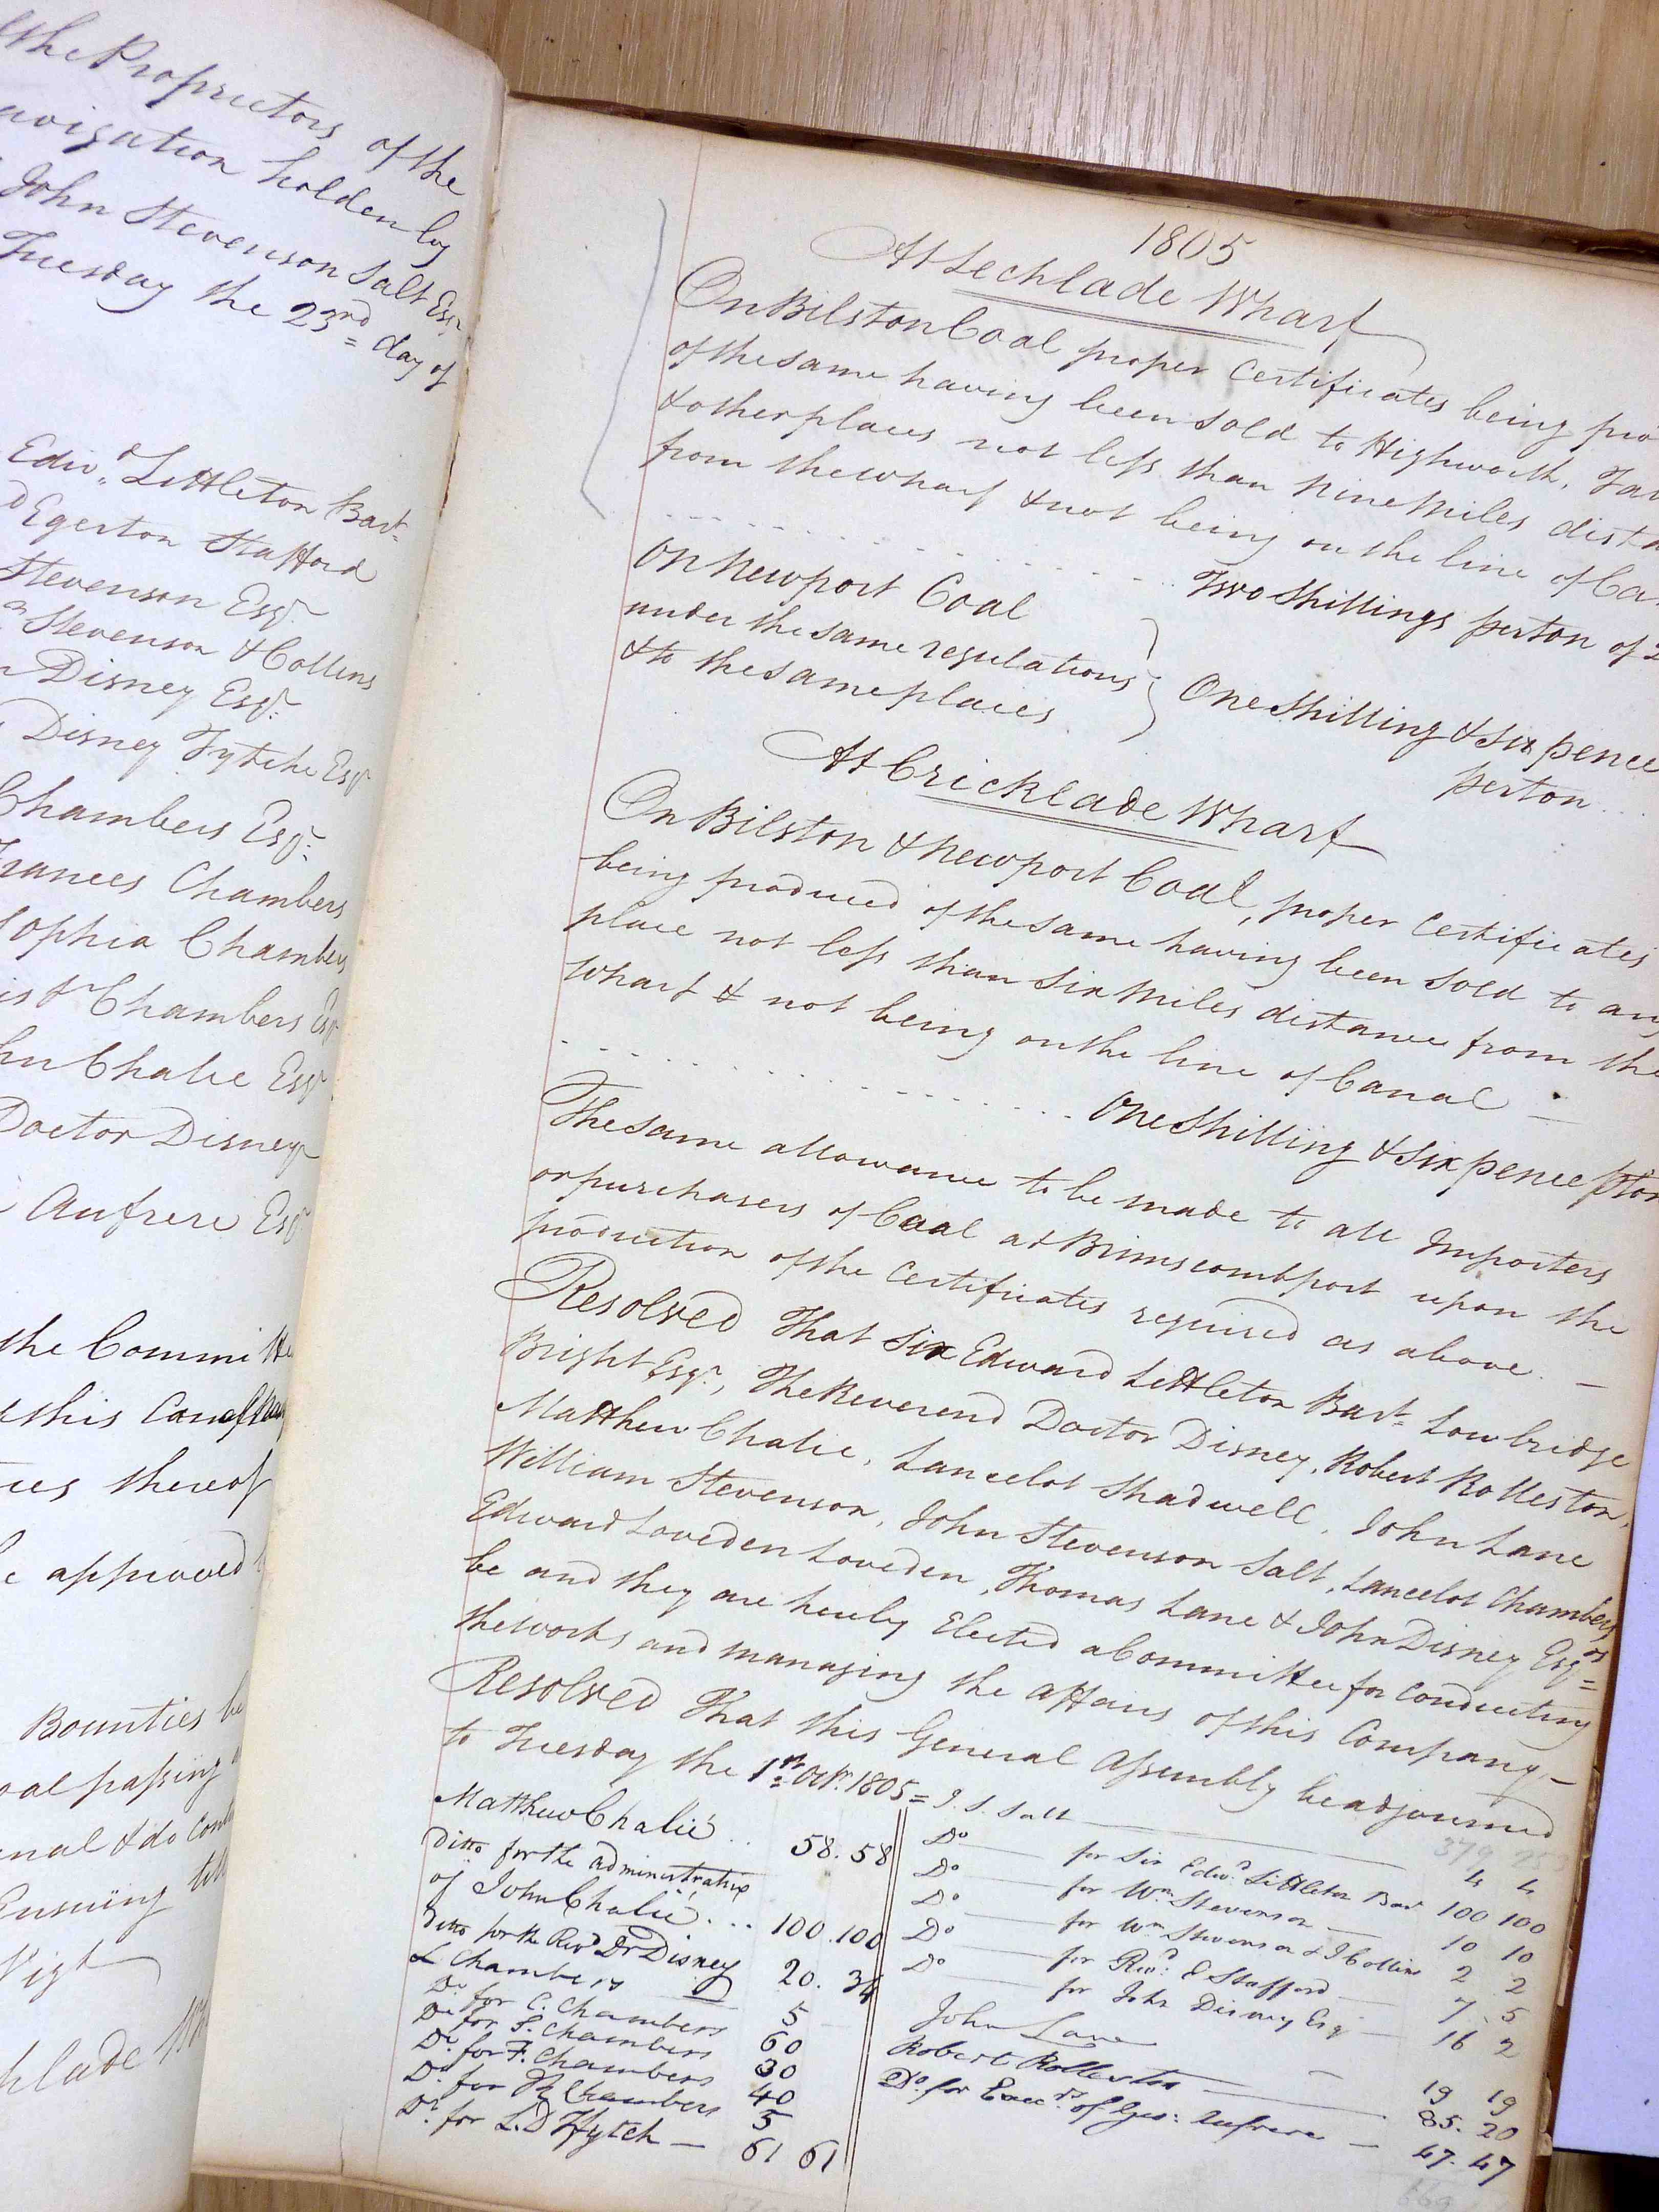 the Proprietors of the
avigation holden by
John Stevenson Salt Esqr
Tuesday the 23rd day of
Edwd. Littleton Bart
Egerton Stafford
Stevenson Esqr.
Stevenson & Collins
Disney Esqr.
Disney Fytche Esqr
Chambers Esqr.
Frances Chambers
Sophia Chambers
Chambers Esqr
Chalie Esqr
Doctor Disney
Aufrere Esqr
the Committee
this
thereof
approved
Bounties be
passing
nal & do
Ensuing
1805
At Lechlade Wharf
On Bilston Coal proper Certificates being pro
of the same having been sold to Highworth, Far
& other places not less than nine Miles dista
from the wharf & not being on the line of Ca
Two Shillings per ton of 2
On Newport Coal
under the same regulations
& to the same places
One Shilling & six pence
per ton
At Cricklade Wharf
On Bilston & Newport Coal, proper Certificates
being produced of the same having been sold to any
place not less than Six Miles distance from the
Wharf & not being on the line of Canal
One Shilling & six pence pton
The same allowance to be made to all Importers
or purchasers of Coal at Brimscombport upon the
production of the Certificates required as above. –
Resolved That Sir Edward Littleton Bart. Lowbridge
Bright Esqr., The Reverend Doctor Disney, Robert Rolleston,
Matthew Chalie, Lancelot Shadwell, John Lane
William Stevenson, John Stevenson Salt, Lancelot Chambers
Edward Loveden Loveden, Thomas Lane & John Disney Esqrs
be and they are hereby Elected a Committee for Conducting
the works and managing the affairs of this Company –
Resolved That this General Assembly be adjourned
to Tuesday the 1st. Octr. 1805 =
Matthew Chalié .. 58. 58
Ditto for the administratrix
of John Chalié ... 100. 100
Ditto for the Revd Dr Disney 20. 34
L Chambers 5
Do. for C. Chambers 60
Do. for S. Chambers 30
Do. for F. Chambers 40
Do. for Chambers 5
Do. for L. D Ffytch — 61 61
J. S. Salt 4 4
Do — for Sir Edwd. Littleton Bart 100 100
Do — for Wm. Stevenson — 10 10
Do — for Wm Stevenson & J Collins 2 2
Do — for Revd. E Stafford — 7. 5
Do — for John Disney Esqr — 16 2
John Lane — 19 19
Robert Rolleston — 85. 20
Do. for Execrs. of Geo: Aufrere — 47. 47